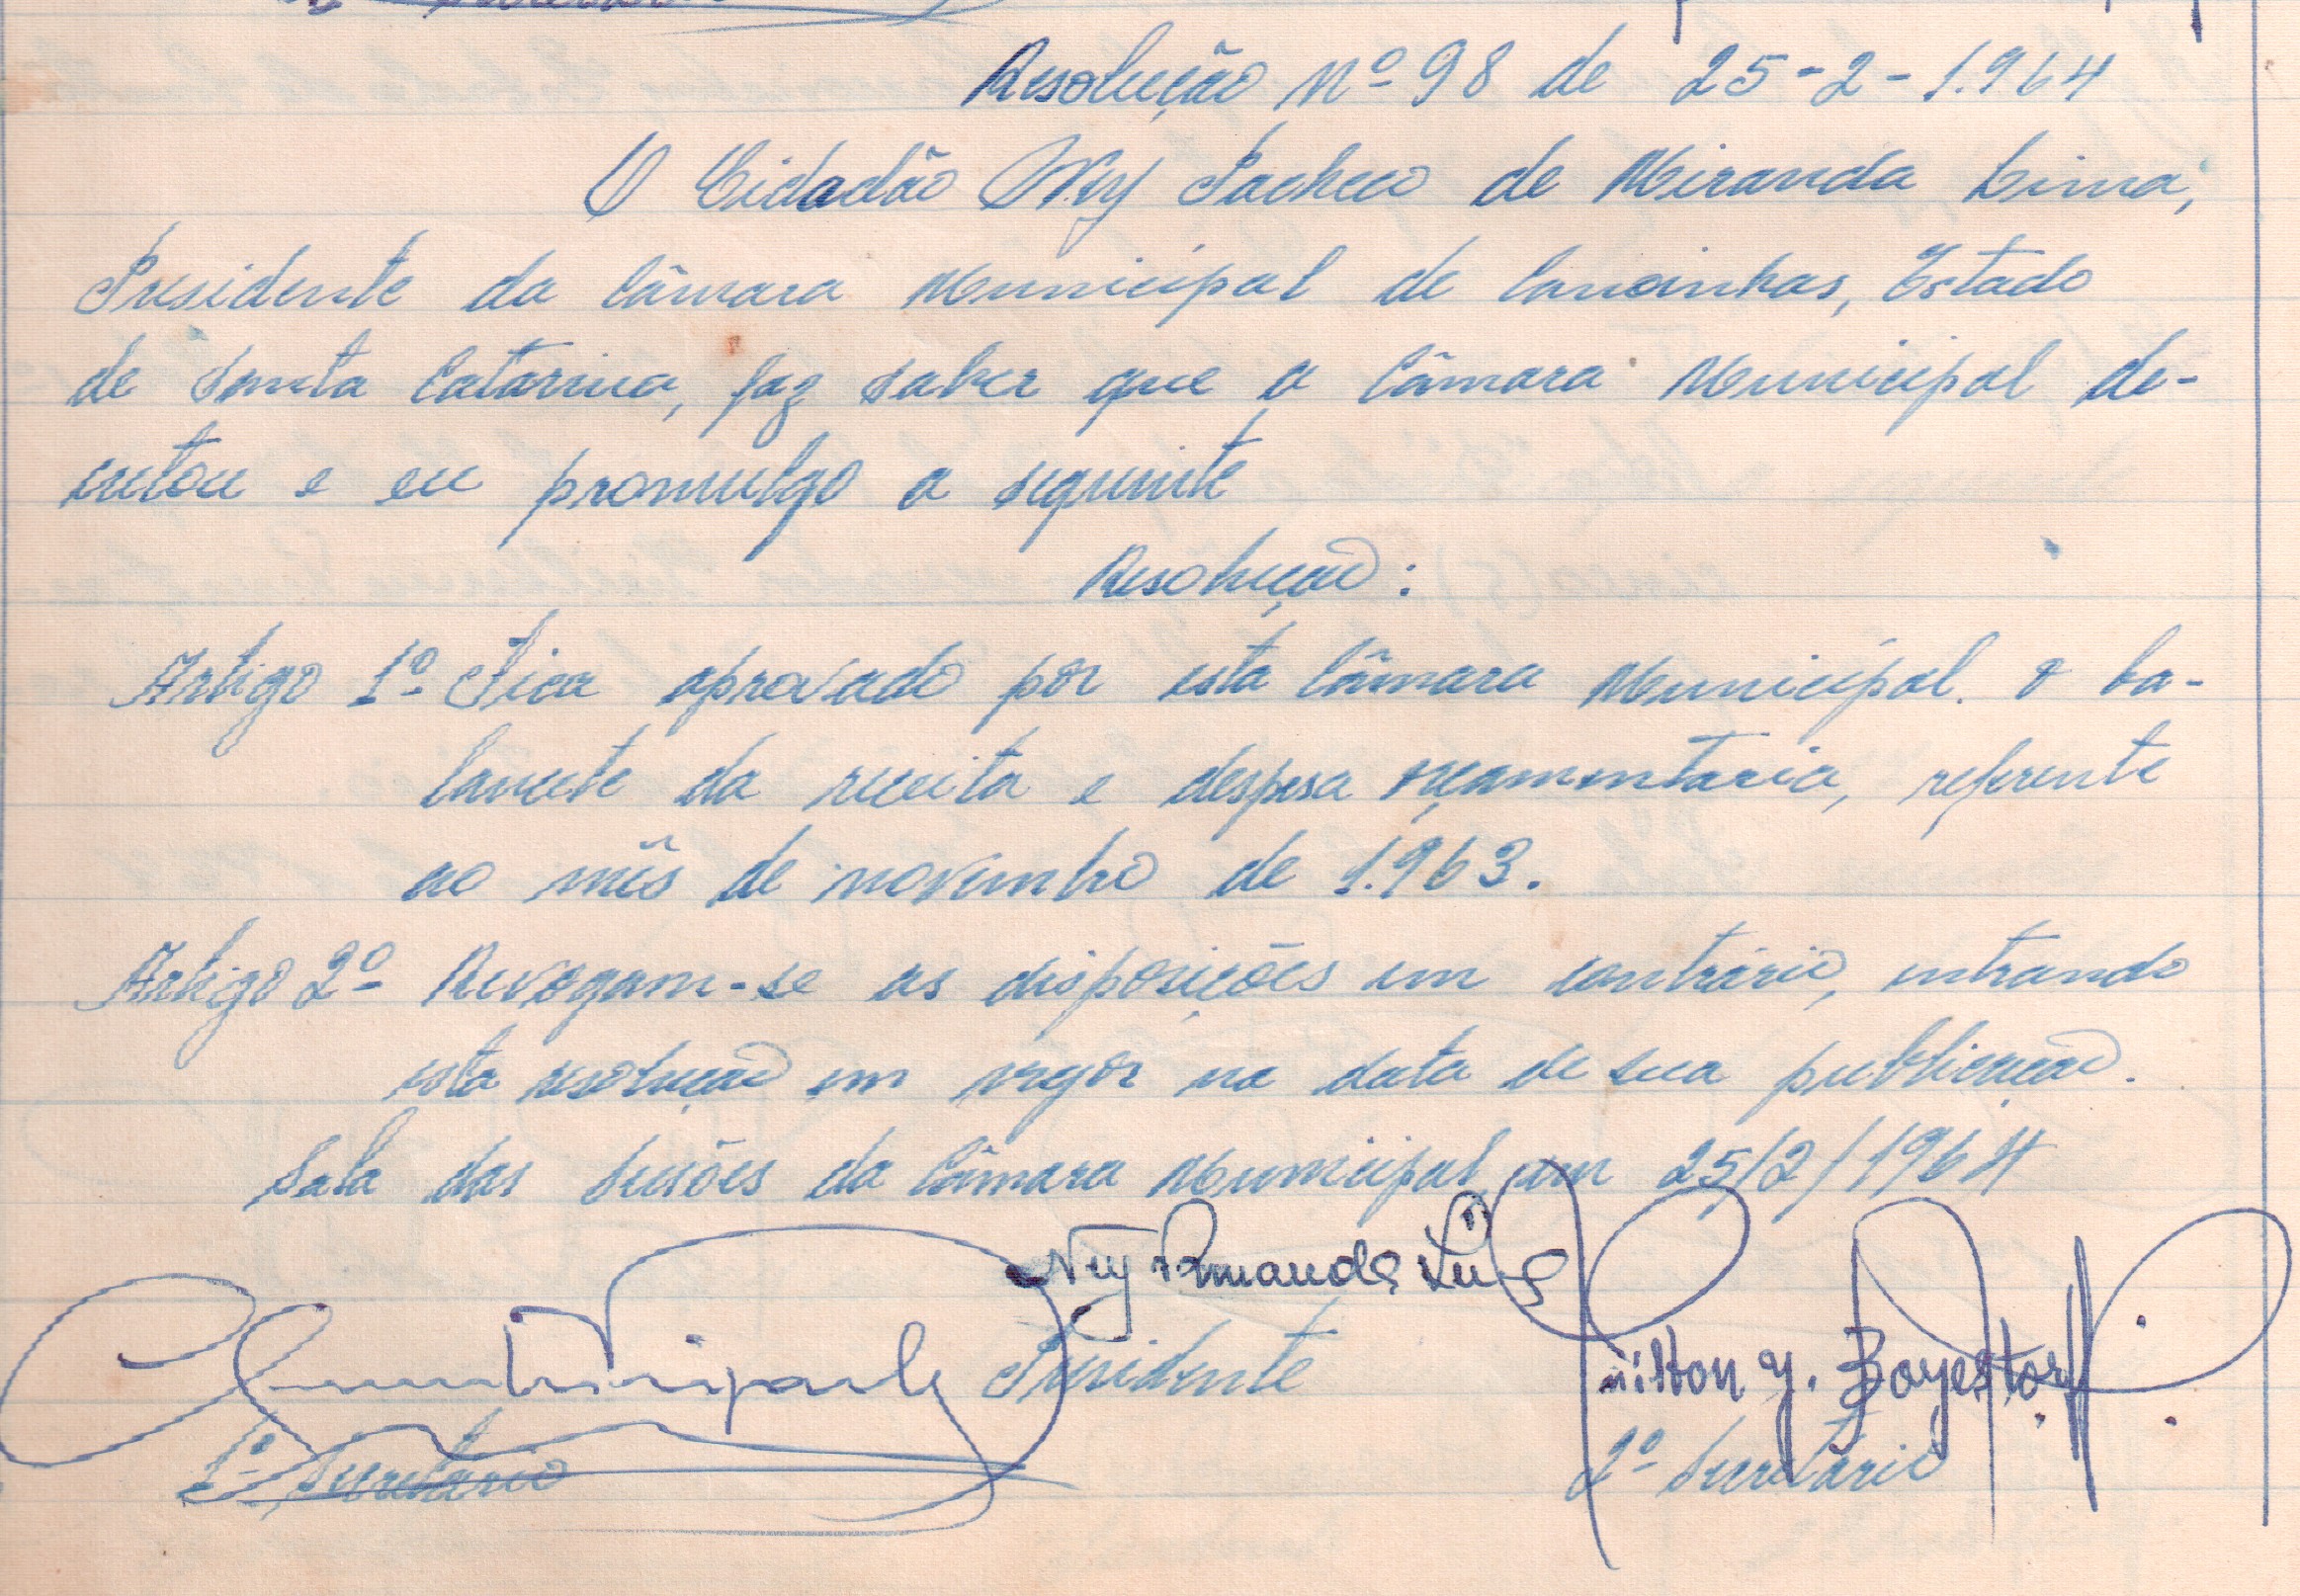 Resolução Nº 98 de 25-2-1.964
O Cidadão Ney Pacheco de Miranda Lima,
Presidente da Câmara Municipal de Canoinhas, Estado
de Santa Catarina, faz saber que a Câmara Municipal de-
cretou e eu promulgo a seguinte
Resolução:
Artigo 1º Fica aprovado por esta Câmara Municipal. o ba-
lancete da receita e despesa orçamentaria, referente
ao mês de novembro de 1.963.
Artigo 2º Revogam-se as disposições em contrário, entrando
esta resolução em vigor na data de sua publicação.
Sala das Sessões da Câmara Municipal, em 25/2/1964
Ney Miranda Lima
Presidente
Nilton y. Boyestorff
1º Secretário
2º Secretário